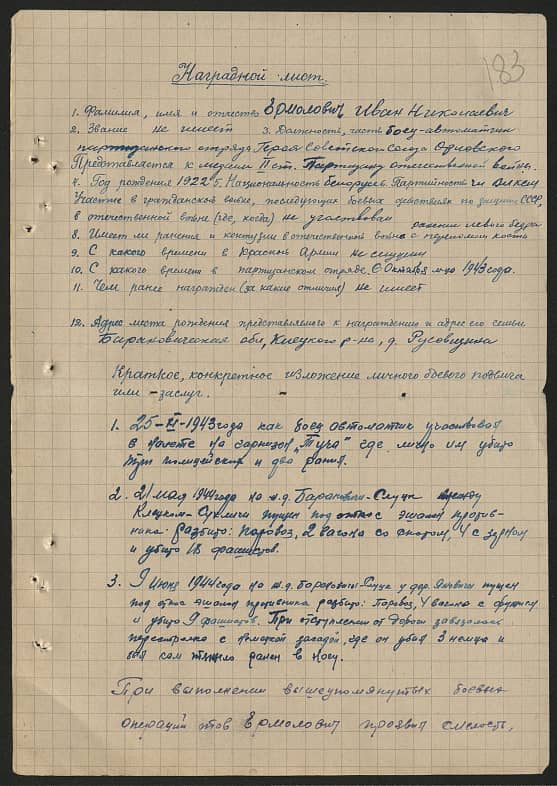 183
Наградной лист.
1. Фамилия, имя и отчество Ермолович Иван Николаевич
2. Звание не имеет 3. Должность, часть боец-автоматчик
партизанского отряда Героя Советского Союза Орловского
Представляется к медали II ст. Партизану отечественной войны.
4. Год рождения 1922 5. Национальность белорус 6. Партийность чл. ВЛКСМ
Участие в гражданской войне, последующих боевых действиях по защите СССР,
в отечественной войне (где, когда) не участвовал
ранение левого бедра
8. Имеет ли ранения и контузии в отечественной войне с переломом кости
9. С какого времени в Красной Армии не служил
10. С какого времени в партизанском отряде 6 октября м-ца 1943 года.
11. Чем ранее награжден (за какие отличия) не имеет
12. Адрес места рождения представляемого к награждению и адрес его семьи
Барановическая обл, Клецкого р-на, д. Русовщина
Краткое, конкретное изложение личного боевого подвига
или заслуг.
1. 25-XI-1943 года как боец автоматчик участвовал
в налете на гарнизон „Туча" где лично им убито
полицейских и два ранил.
2. 21 мая 1944 года на ж.д. Барановичи-Слуцк между
Клецком-Сухличи пущен под откос эшалон против-
ника: разбито: паровоз, 2 вагона со скотом, 4 с зерном
и убито 18 фашистов.
3. 9 июня 1944 года на ж.д. Барановичи-Слуцк у дер. пущен
под откос эшалон противника разбито: Паровоз, 4 вагона с
и убито 9 фашистов. При отступлении от дороги завязалась
перестрелка с немецкой засадой, где он убил 3 немца и
был сам тяжело ранен в ногу.
При выполнении вышеупомянутых боевых
операций тов Ермолович проявил смелость,